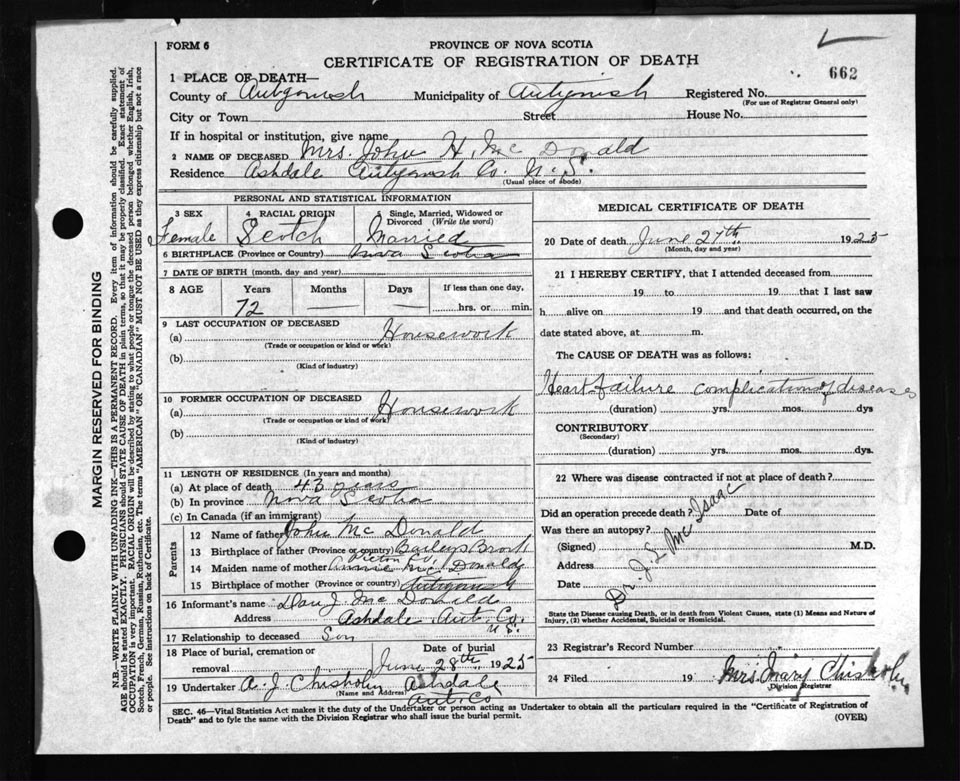 FORM 6
PROVINCE OF NOVA SCOTIA
CERTIFICATE OF REGISTRATION OF DEATH
662
1 PLACE OF DEATH—
County of Antigonish Municipality of Antigonish Registered No.
(For use of Registrar General only)
City or Town Street House No.
If in hospital or institution, give name
2 NAME OF DECEASED Mrs. John H. Mc Donald
Residence Ashdale Antigonish Co. N. S.
(Usual place of abode)
PERSONAL AND STATISTICAL INFORMATION
3 SEX 4 RACIAL ORIGIN 5 Single, Married, Widowed or Divorced (Write the word)
Female Scotch Married
6 BIRTHPLACE (Province or Country) Nova Scotia
7 DATE OF BIRTH (month, day and year)
8 AGE Years Months Days If less than one day,
72 — — hrs. or min.
9 LAST OCCUPATION OF DECEASED
(a) Housework
(Trade or occupation or kind or work)
(b)
(Kind of industry)
10 FORMER OCCUPATION OF DECEASED
(a) Housework
(Trade or occupation or kind of work)
(b)
(Kind of industry)
11 LENGTH OF RESIDENCE (In years and months)
(a) At place of death 43 years
(b) In province Nova Scotia
(c) In Canada (if an immigrant)
Parents
12 Name of father John Mc Donald
13 Birthplace of father (Province or country) Baileys Brook
14 Maiden name of mother Annie Mc Donald
15 Birthplace of mother (Province or country) Antigonish
16 Informant's name Dan J. Mc Donald
Address Ashdale Ant. Co.
N. S.
17 Relationship to deceased Son
18 Place of burial, cremation or removal Date of burial
June 28th 1925
19 Undertaker A. J. Chisholm Ashdale
(Name and Address)
Ant. Co
MEDICAL CERTIFICATE OF DEATH
20 Date of death June 27th 1925
(Month, day and year)
21 I HEREBY CERTIFY, that I attended deceased from
19 to 19 that I last saw
h alive on 19 and that death occurred, on
date stated above, at m.
The CAUSE OF DEATH was as follows:
Heart failure complication of diseases
(duration) yrs. mos. dys
CONTRIBUTORY
(Secondary)
(duration) yrs. mos. dys.
22 Where was disease contracted if not at place of death?
Did an operation precede death? Date of
Was there an autopsy?
(Signed) M.D.
Address
Date
Dr. J. L. Mc Isaac
State the Disease causing Death, or in death from Violent Causes, state (1) Means and Nature of
Injury, (2) whether Accidental, Suicidal or Homicidal.
23 Registrar's Record Number
24 Filed 19 Mrs. Mary Chisholm
Division Registrar
SEC. 46—Vital Statistics Act makes it the duty of the Undertaker or person acting as Undertaker to obtain all the particulars required in the "Certificate of Registration of
Death" and to fyle the same with the Division Registrar who shall issue the burial permit.
(OVER)
MARGIN RESERVED FOR BINDING
N.B.—WRITE PLAINLY WITH UNFADING INK—THIS IS A PERMANENT RECORD. Every item of information should be carefully supplied.
AGE should be stated EXACTLY. PHYSICIANS should STATE CAUSE OF DEATH in plain terms, so that it may be properly classified. Exact statement of
OCCUPATION is very important. RACIAL ORIGIN will be described by stating to what people or tongue the deceased person belonged whether English, Irish,
Scotch, French, German, Russian, Ruthenian, etc. The terms "AMERICAN" or "CANADIAN" MUST NOT BE USED as they express citizenship but not a race
or people. See instructions on back of Certificate.